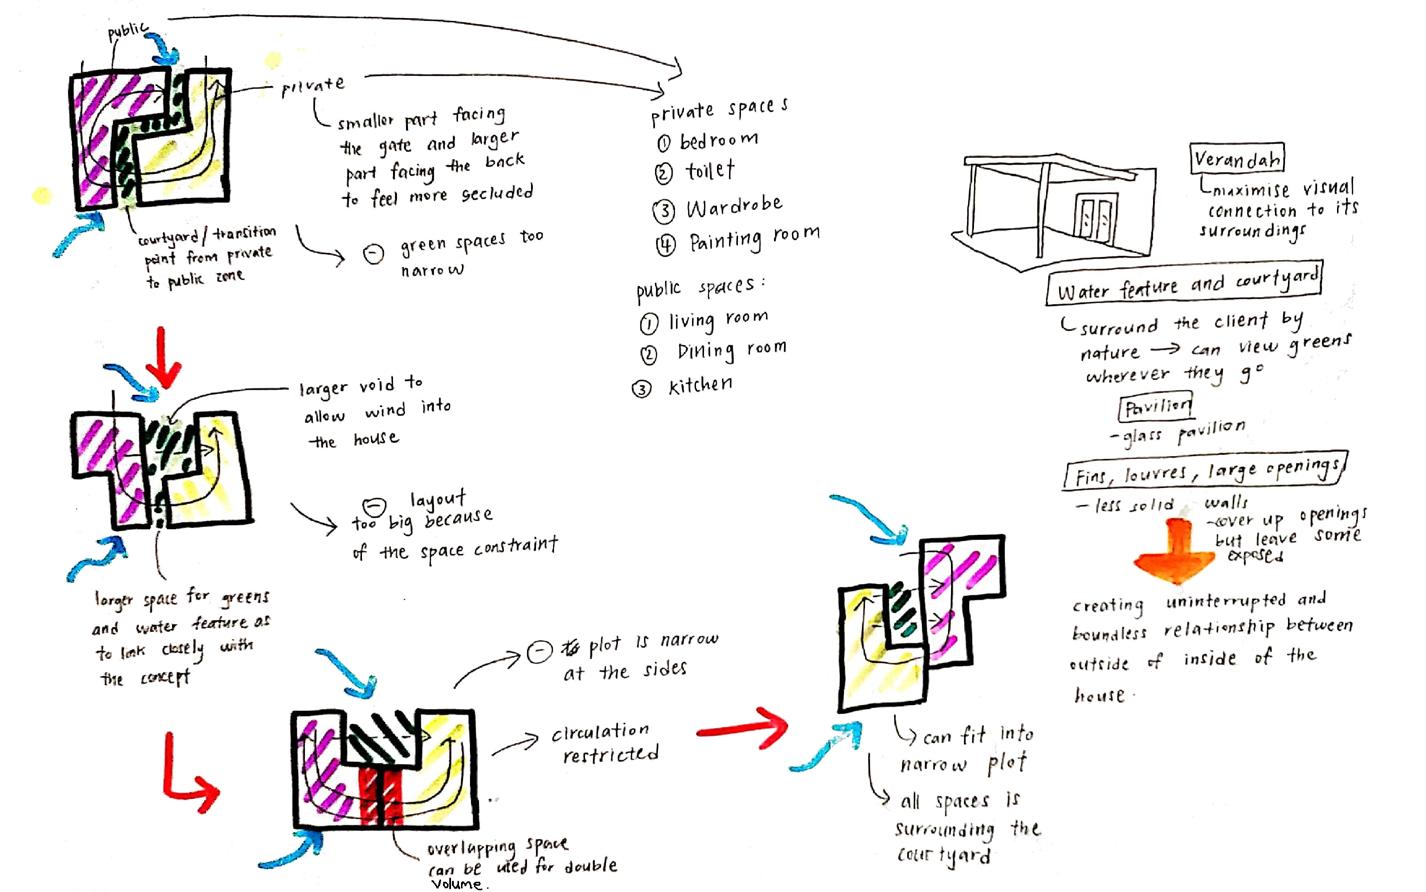 public
private
smaller part facing
the gate and larger
part facing the back
to feel more secluded
courtyard/transition
point from private
to public zone
⊖ green spaces too
narrow
private spaces
① bedroom
② toilet
③ Wardrobe
④ Painting room
public spaces:
① living room
② Dining room
③ kitchen
larger void to
allow wind into
the house
⊖ layout
too big because
of the space constraint
larger space for greens
and water feature as
to link closely with
the concept
⊖ plot is narrow
at the sides
circulation
restricted
overlapping space
can be used for double
volume.
can fit into
narrow plot
all spaces is
surrounding the
courtyard
Verandah
maximise visual
connection to its
surroundings
Water feature and courtyard
surround the client by
nature → can view greens
wherever they go
Pavilion
- glass pavilion
Fins, louvres, large openings
- less solid walls
- cover up openings
but leave some
exposed
creating uninterrupted and
boundless relationship between
outside of inside of the
house.